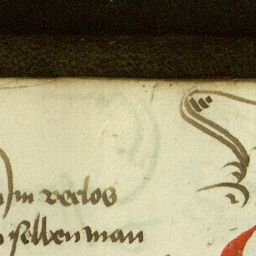 in verlos
selben man